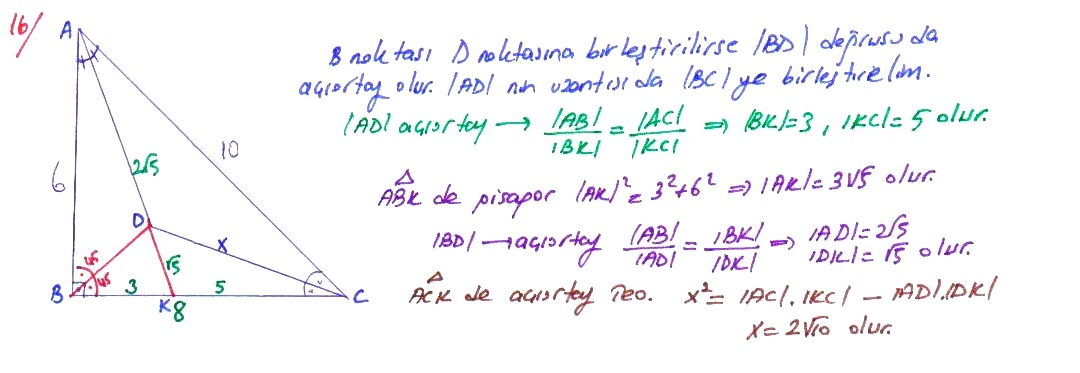 16/
A
B noktası D noktasına birleştirilirse |BD| doğrusu da
açıortay olur. |AD| nın uzantısı da |BC| ye birleştirelim.
|AD| açıortay → |AB|/|BK| = |AC|/|KC| ⇒ |BK|=3, |KC|=5 olur.
10
2√5
6
ABK de pisagor |AK|² = 3²+6² ⇒ |AK|=3√5 olur.
D
x
|BD| → açıortay |AB|/|AD| = |BK|/|DK| ⇒ |AD|=2√5 |DK|=√5 olur.
45
45
√5
B
3
K
8
5
C
ACK de açıortay Teo. x² = |AC|.|KC| – |AD|.|DK|
x = 2√10 olur.